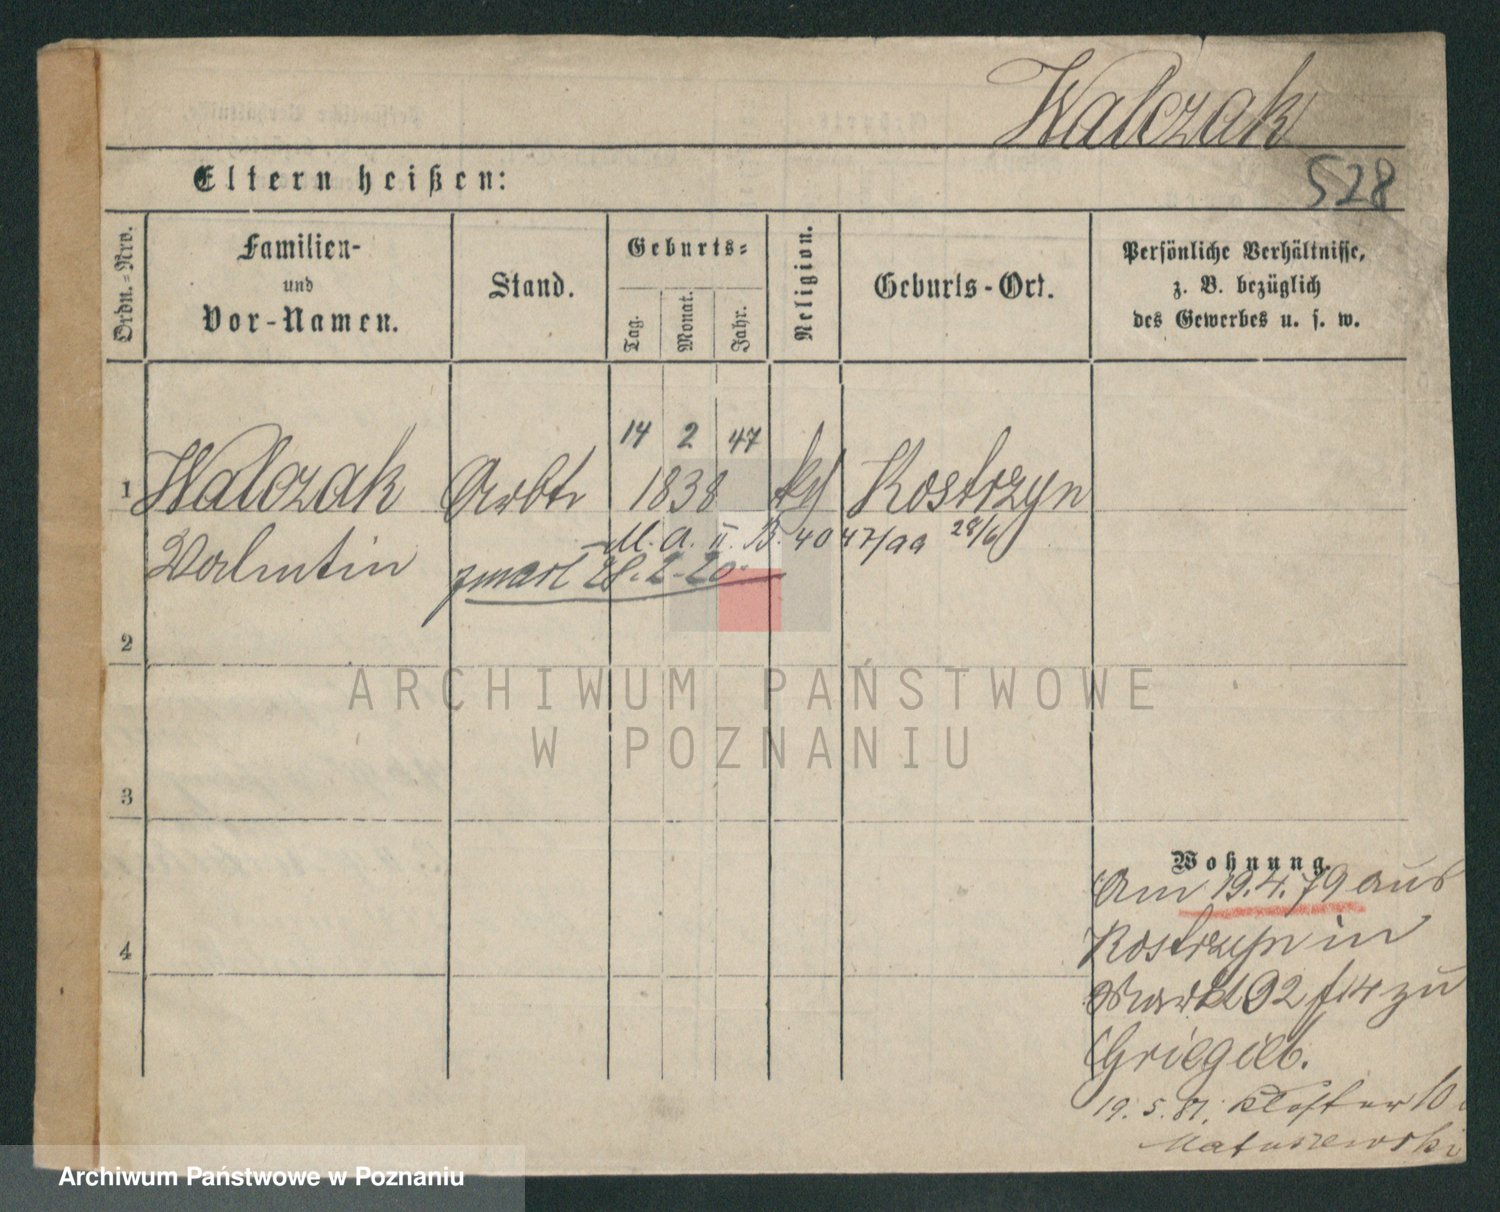 Walczak
528
Eltern heißen:
Ordn.=Nro.
Familien-
und
Vor-Namen.
Stand.
Geburts=
Tag.
Monat.
Jahr.
Religion.
Geburts-Ort.
Persönliche Verhältnisse,
z. B. bezüglich
des Gewerbes u. s. w.
14 2 47
1 Walczak Arbtr 1838 kth Kostrzyn
Valentin M. A. II. B. 4047/99 28/6
zmarł 28.2.20
2
ARCHIWUM PAŃSTWOWE
W POZNANIU
3
Wohnung.
Am 19.4.79 aus
4
Kostrzyn in
Markt 92 f 14 zu
19.5.81. Kloster 10
Matuszewski
Archiwum Państwowe w Poznaniu